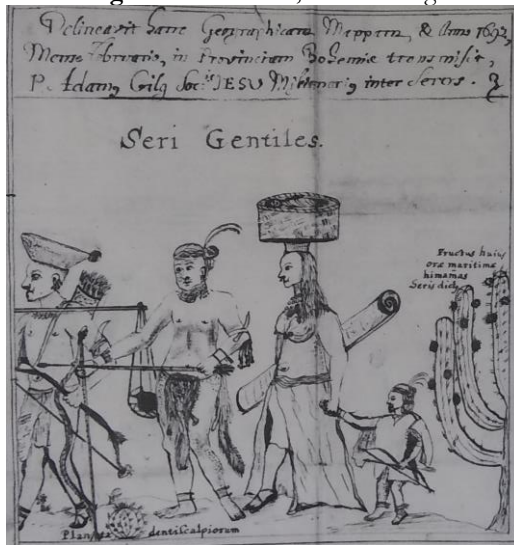 Delineavit hanc Geographicam Mappam, & Anno 1692,
Mense Februario, in Provinciam Bohemiæ transmisit,
P. Adamq Gilg Soc. JESU Mißionariq inter Seros.
Seri Gentiles.
Fructus huius
oræ maritimæ
himamas
Seris dicti
Planta dentiscalpiorum